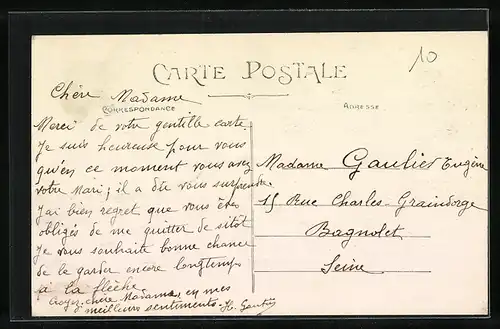 10
CARTE POSTALE
Chère Madame
CORRESPONDANCE
ADRESSE
Merci de votre gentille carte
Je suis heureuse pour vous
qu'en ce moment vous avez
votre Mari; il a dû vous surprendre
J'ai bien regret que vous êtes
obligés de me quitter de sitôt
Je vous souhaite bonne chance
de le garder encore longtemps
à la flèche.
Croyez, chère Madame, en mes
meilleurs sentiments. H.
Madame Gaulier Eugène
15 Rue Charles-Graindorge
Bagnolet
Seine